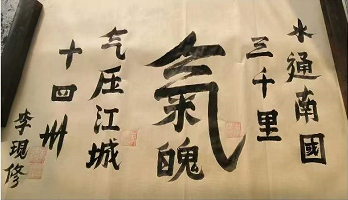 水通南國
三千里
氣魄
气压江城
十四州
李現修